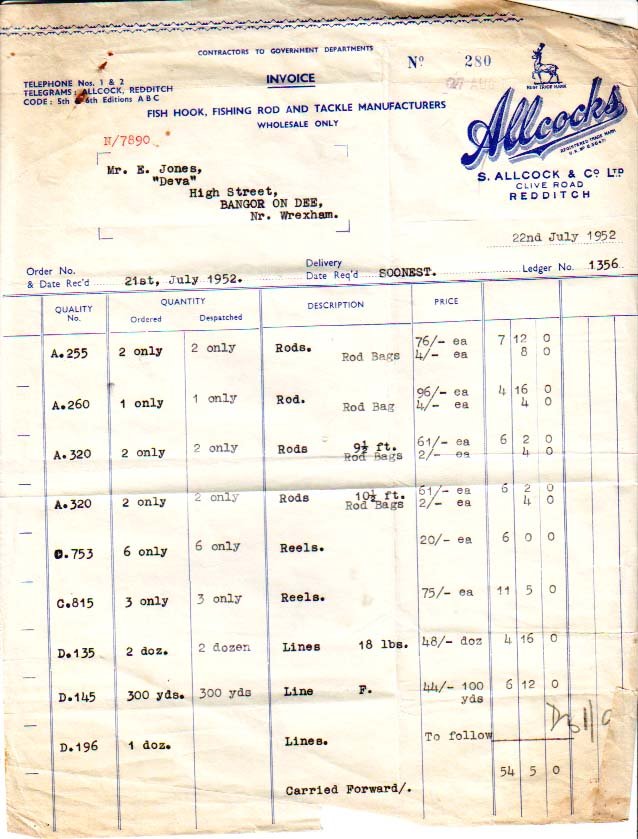 CONTRACTORS TO GOVERNMENT DEPARTMENTS
Nº 280
AUG
REGD TRADE MARK
TELEPHONE Nos. 1 & 2
TELEGRAMS: ALLCOCK, REDDITCH
CODE: 5th & 6th Editions A B C
INVOICE
FISH HOOK, FISHING ROD AND TACKLE MANUFACTURERS
WHOLESALE ONLY
Allcocks
REGISTERED TRADE MARK
S. ALLCOCK & Cº LTD
CLIVE ROAD
REDDITCH
N/7890
Mr. E. Jones,
"Deva"
High Street,
BANGOR ON DEE,
Nr. Wrexham.
22nd July 1952
Order No. & Date Rec'd 21st, July 1952. Delivery Date Req'd SOONEST. Ledger No. 1356
QUALITY No. QUANTITY Ordered Despatched DESCRIPTION PRICE
A.255 2 only 2 only Rods. 76/- ea 7 12 0
Rod Bags 4/- ea 8 0
A.260 1 only 1 only Rod. 96/- ea 4 16 0
Rod Bag 4/- ea 4 0
A.320 2 only 2 only Rods 9½ ft. 61/- ea 6 2 0
Rod Bags 2/- ea 4 0
A.320 2 only 2 only Rods 10½ ft. 61/- ea 6 2 0
Rod Bags 2/- ea 4 0
C.753 6 only 6 only Reels. 20/- ea 6 0 0
C.815 3 only 3 only Reels. 75/- ea 11 5 0
D.135 2 doz. 2 dozen Lines 18 lbs. 48/- doz 4 16 0
D.145 300 yds. 300 yds Line F. 44/- 100 yds 6 12 0
D.196 1 doz. Lines. To follow
54 5 0
Carried Forward/.